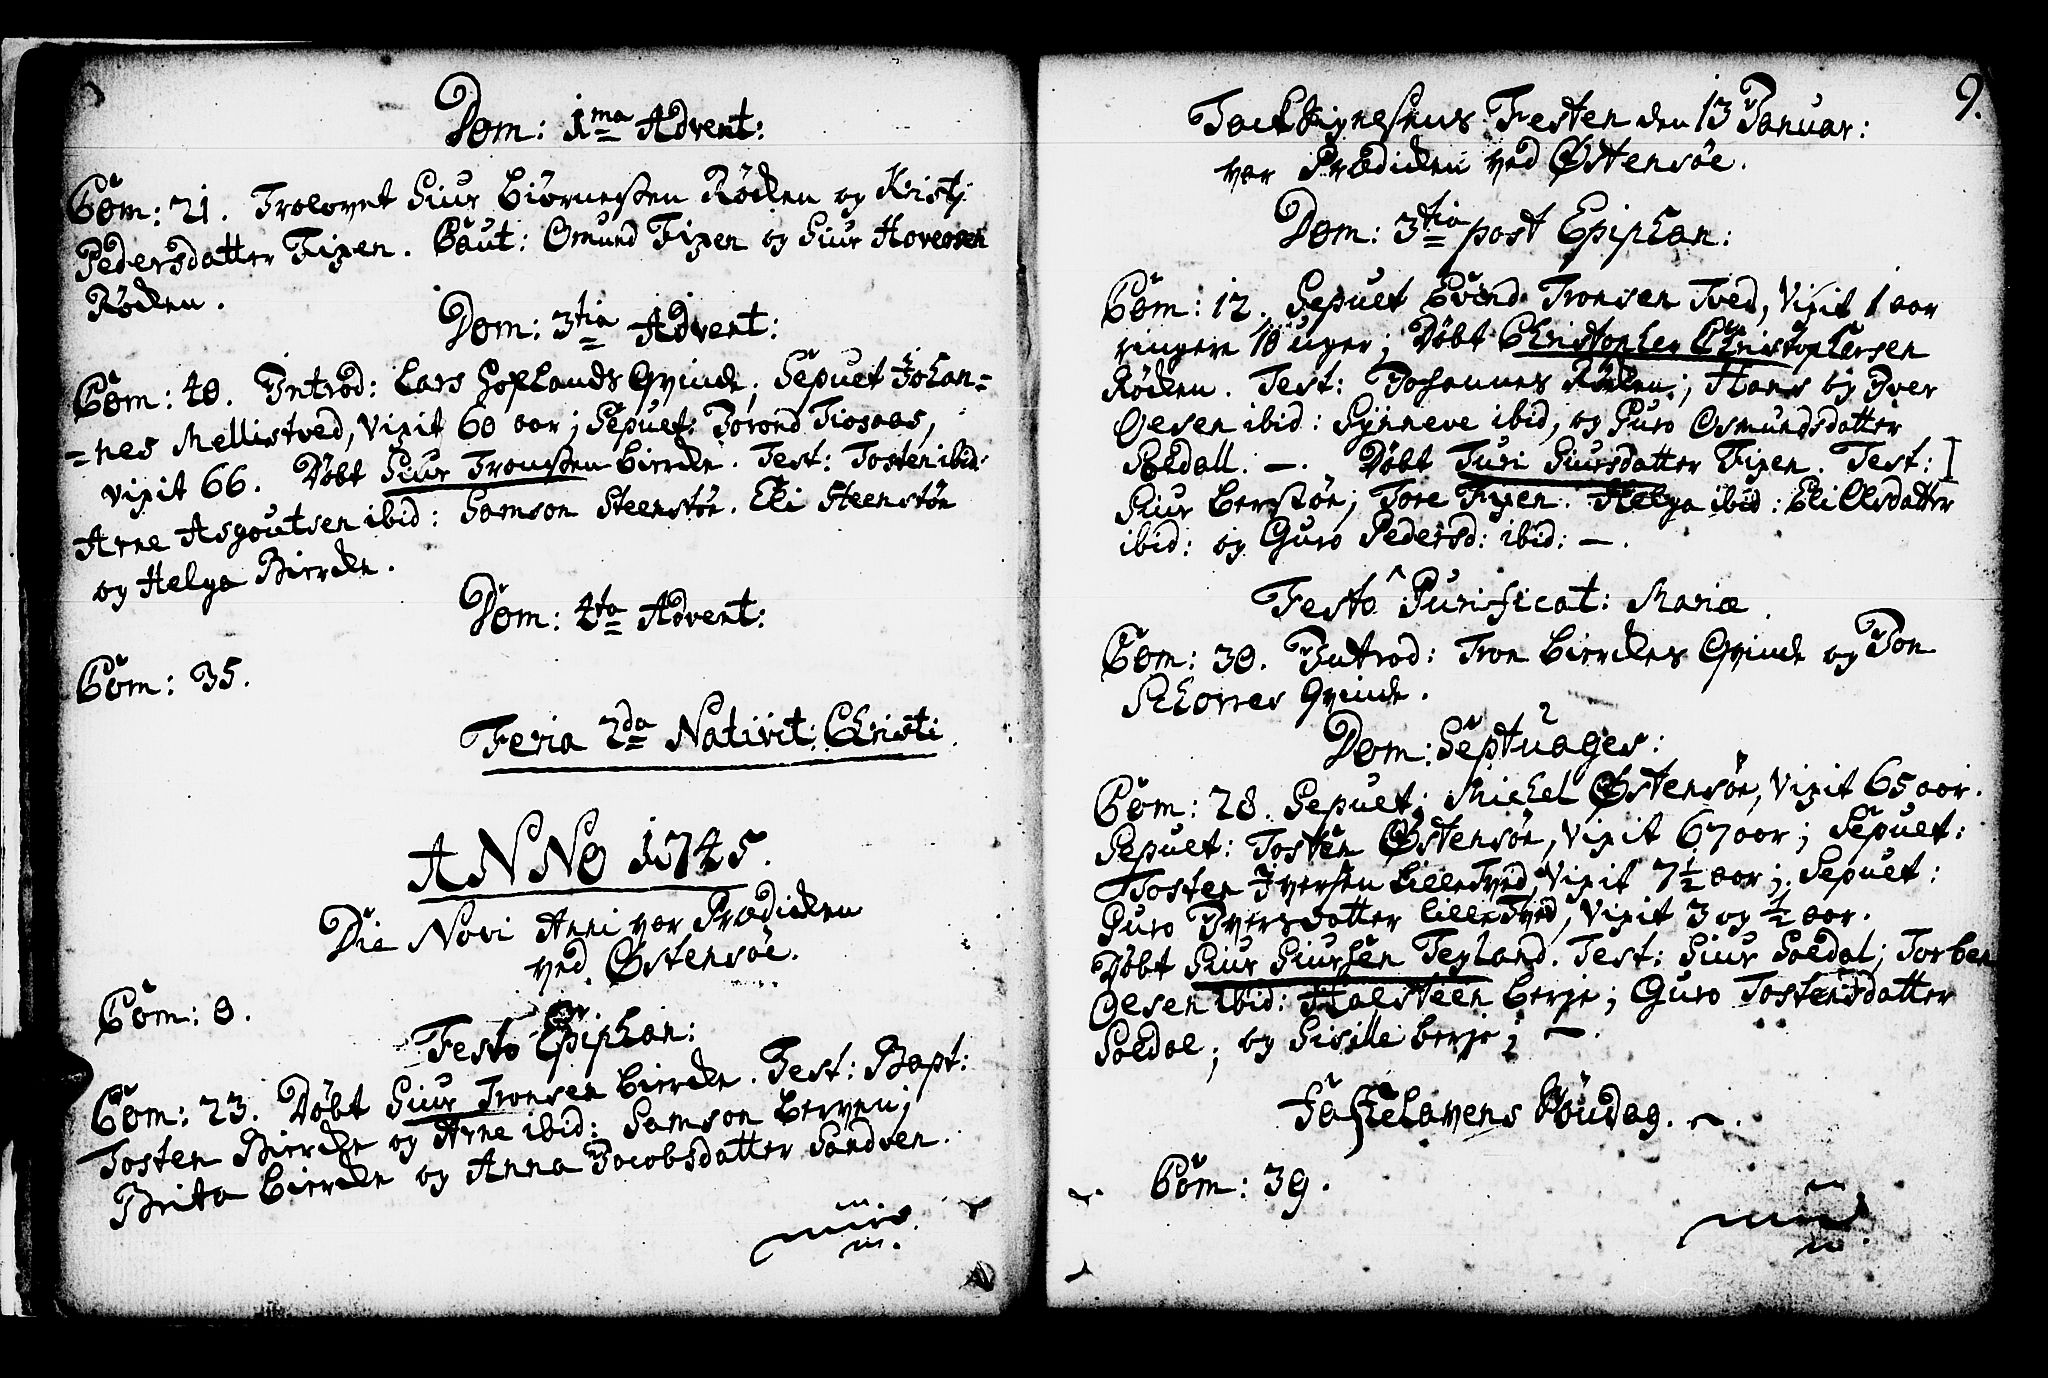 Dom: 1ma Advent:
Com: 21. Trolovet Siur Biørnessen Røcken og Kristj
Pedersdatter Fixen. Caut: Omund Fixen og Siur Hovesen
Røcken.
Dom: 3tia Advent:
Com: 40. Introd: Lars Soplands Qvinde; Sepult Johan=
=nes Mellistved, vixit 60 aar; Sepult: Torond Tiosaas,
vixit 66. Døbt Siur Tronssen Bircke. Test: Tosten ibid:
Arne Asgoutsen ibid: Samson Steenstøe. Eli Steenstøe
og Helga Bircke.
Dom: 4ta Advent:
Com: 35.
Feria 2da Nativit: Christi.
ANNO 1745.
Die Novi Anni var Prædicken
ved Østensøe.
Com: 8.
Festo Epiphan:
Com: 23. Døbt Siur Tronsen Bircke. Test: Bapt:
Tosten Bircke og Arne ibid: Samson Berven;
Brita Bircke og Anna Jacobsdatter Sandven.
9.
Tacksigneshus Festen den 13 Januar:
var Prædicken ved Østensøe.
Dom: 3tia post Epiphan:
Com: 12. Sepult Evind Tronsen Tved, vixit 1 aar
ringere 10 uger; Døbt Christopher Christophersen
Røcken. Test: Johannes Røcken; Hans og Iver
Olsen ibid: Synneve ibid, og Guro Osmundsdatter
Soldall. —. Døbt Turi Siursdatter Fixen. Test:
Siur Berstøe; Tore Fixen. Helga ibid: Eli Olsdatter
ibid: og Guro Pedersd: ibid: —.
Festo Purificat: Mariæ.
Com: 30. Introd: Tron Birckes Qvinde og Jon
Skorres Qvinde.
Dom: Septuages:
Com: 28. Sepult; Michel Østensøe, vixit 65 aar.
Sepult: Tosten Østensøe, vixit 67 aar; Sepult:
Tosten Iversen LilleTved, vixit 7½ aar; Sepult:
Guro Iversdatter LilleTved, vixit 3 og ½ aar.
Døbt Siur Siursen Tegland. Test: Siur Soldal; Torben
Olsen ibid: Halsteen Berje; Guro Tostensdatter
Soldal; og Sisille Berje; —.
Fastelavens Søndag.
Com: 39.